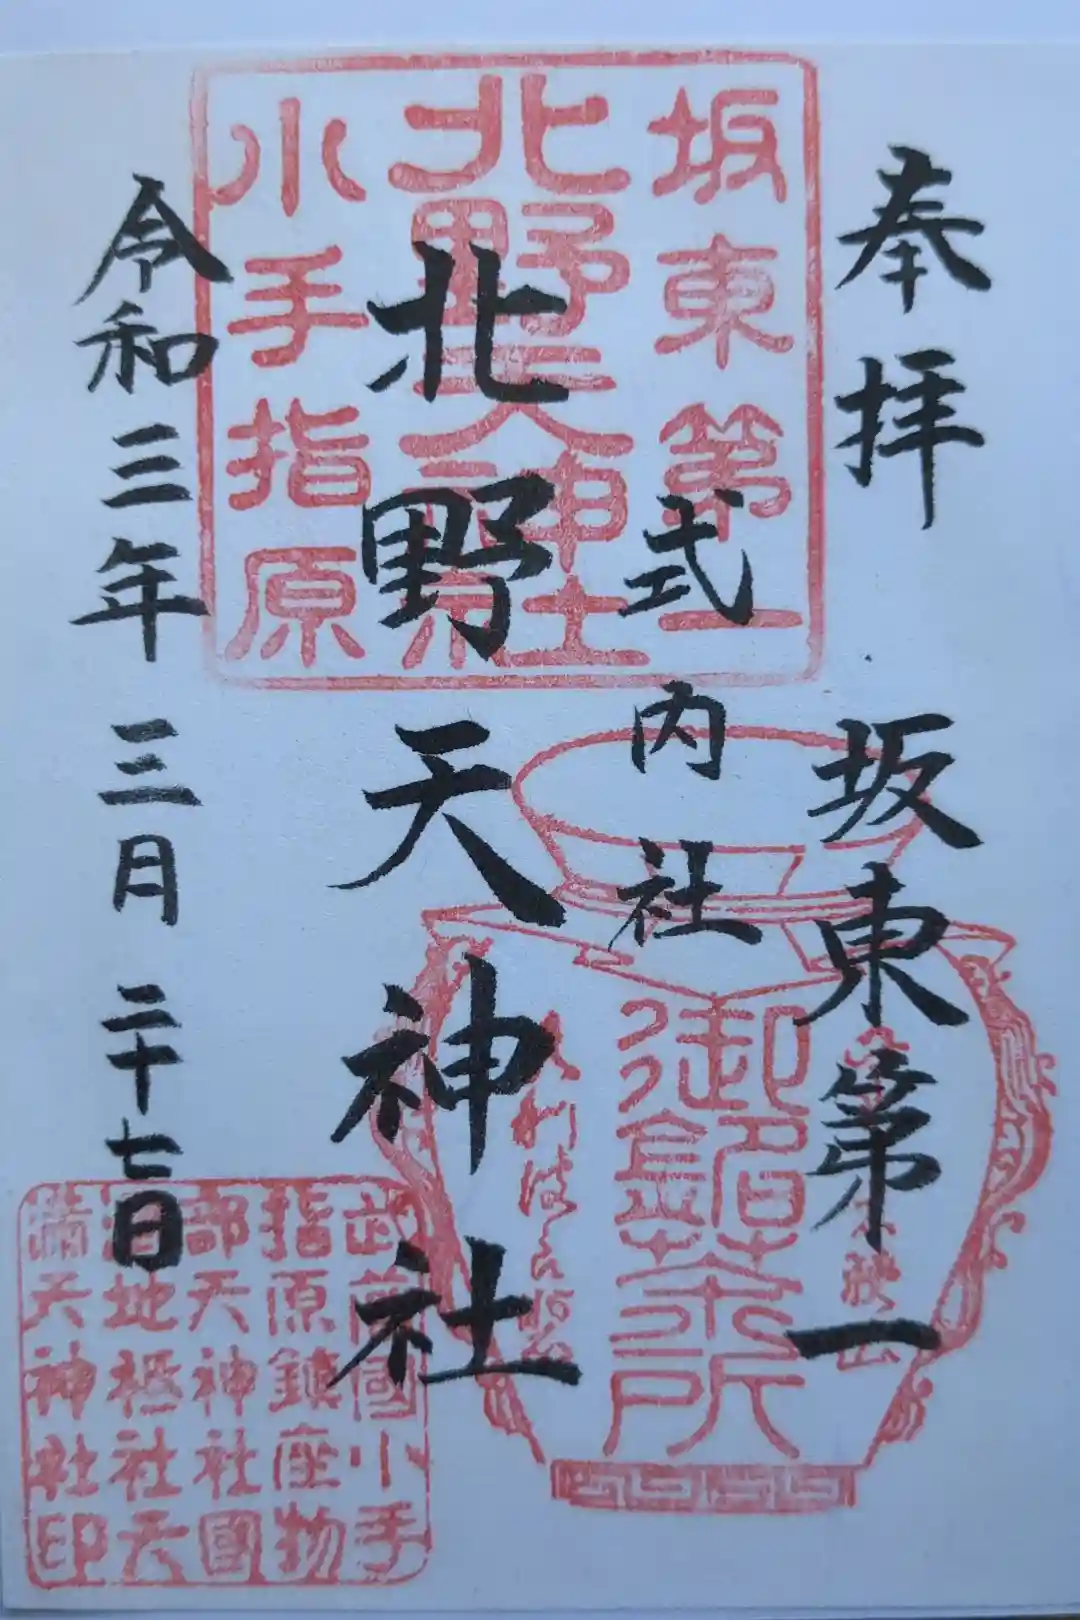 奉拝
坂東第一
式内社
北野天神社
令和三年三月二十七日
坂東第一
北野天神社
小手指原
御茶所
武蔵國小手
指原鎮座物
部天神社國
渭地祇社天
満天神社印